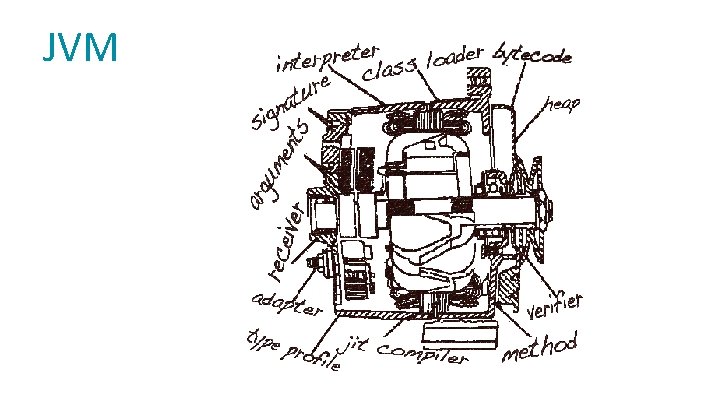 JVM
interpreter
class loader
bytecode
heap
signature
arguments
receiver
adapter
type profile
jit compiler
method
verifier